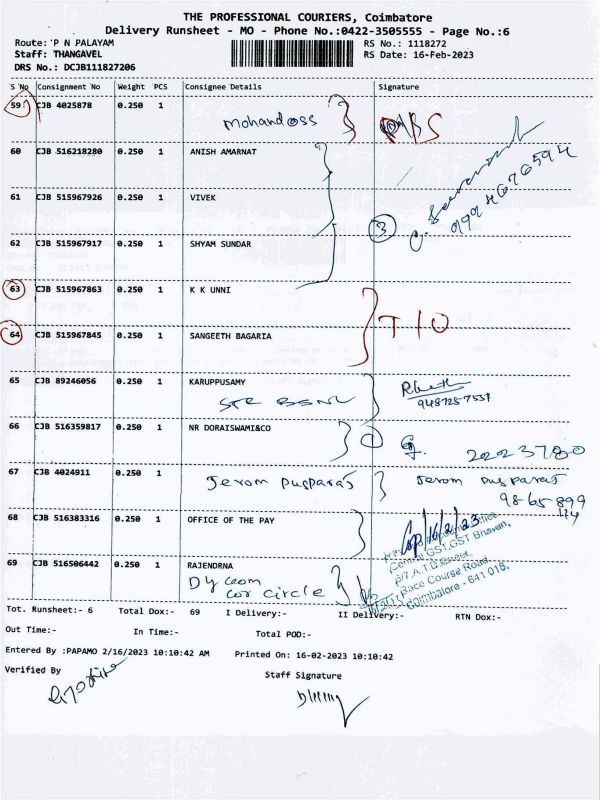 THE PROFESSIONAL COURIERS, Coimbatore
Delivery Runsheet - MO - Phone No.:0422-3505555 - Page No.:6
Route: P N PALAYAM
RS No.: 1118272
Staff: THANGAVEL
RS Date: 16-Feb-2023
DRS No.: DCJB111827206
S No Consignment No Weight PCS Consignee Details Signature
59 CJB 4025878 0.250 1 Mohandoss
60 CJB 516218280 0.250 1 ANISH AMARNAT
61 CJB 515967926 0.250 1 VIVEK
3
9994676594
62 CJB 515967917 0.250 1 SHYAM SUNDAR
63 CJB 515967863 0.250 1 K K UNNI
T 10
64 CJB 515967845 0.250 1 SANGEETH BAGARIA
65 CJB 89246056 0.250 1 KARUPPUSAMY
BSNL
66 CJB 516359817 0.250 1 NR DORAISWAMI&CO
1 2223780
67 CJB 4024911 0.250 1 Jerom Pusparaj Jerom Pusparaj
9865899
114
68 CJB 516383316 0.250 1 OFFICE OF THE PAY
16/2/23
Central GST, GST Bhavan,
6/7, A.T.D. Street,
Race Course Road,
Coimbatore - 641 018.
69 CJB 516506442 0.250 1 RAJENDRNA
Dy com
cor circle
Tot. Runsheet:- 6 Total Dox:- 69 I Delivery:- II Delivery:- RTN Dox:-
Out Time:- In Time:- Total POD:-
Entered By :PAPAMO 2/16/2023 10:10:42 AM Printed On: 16-02-2023 10:10:42
Verified By
Staff Signature